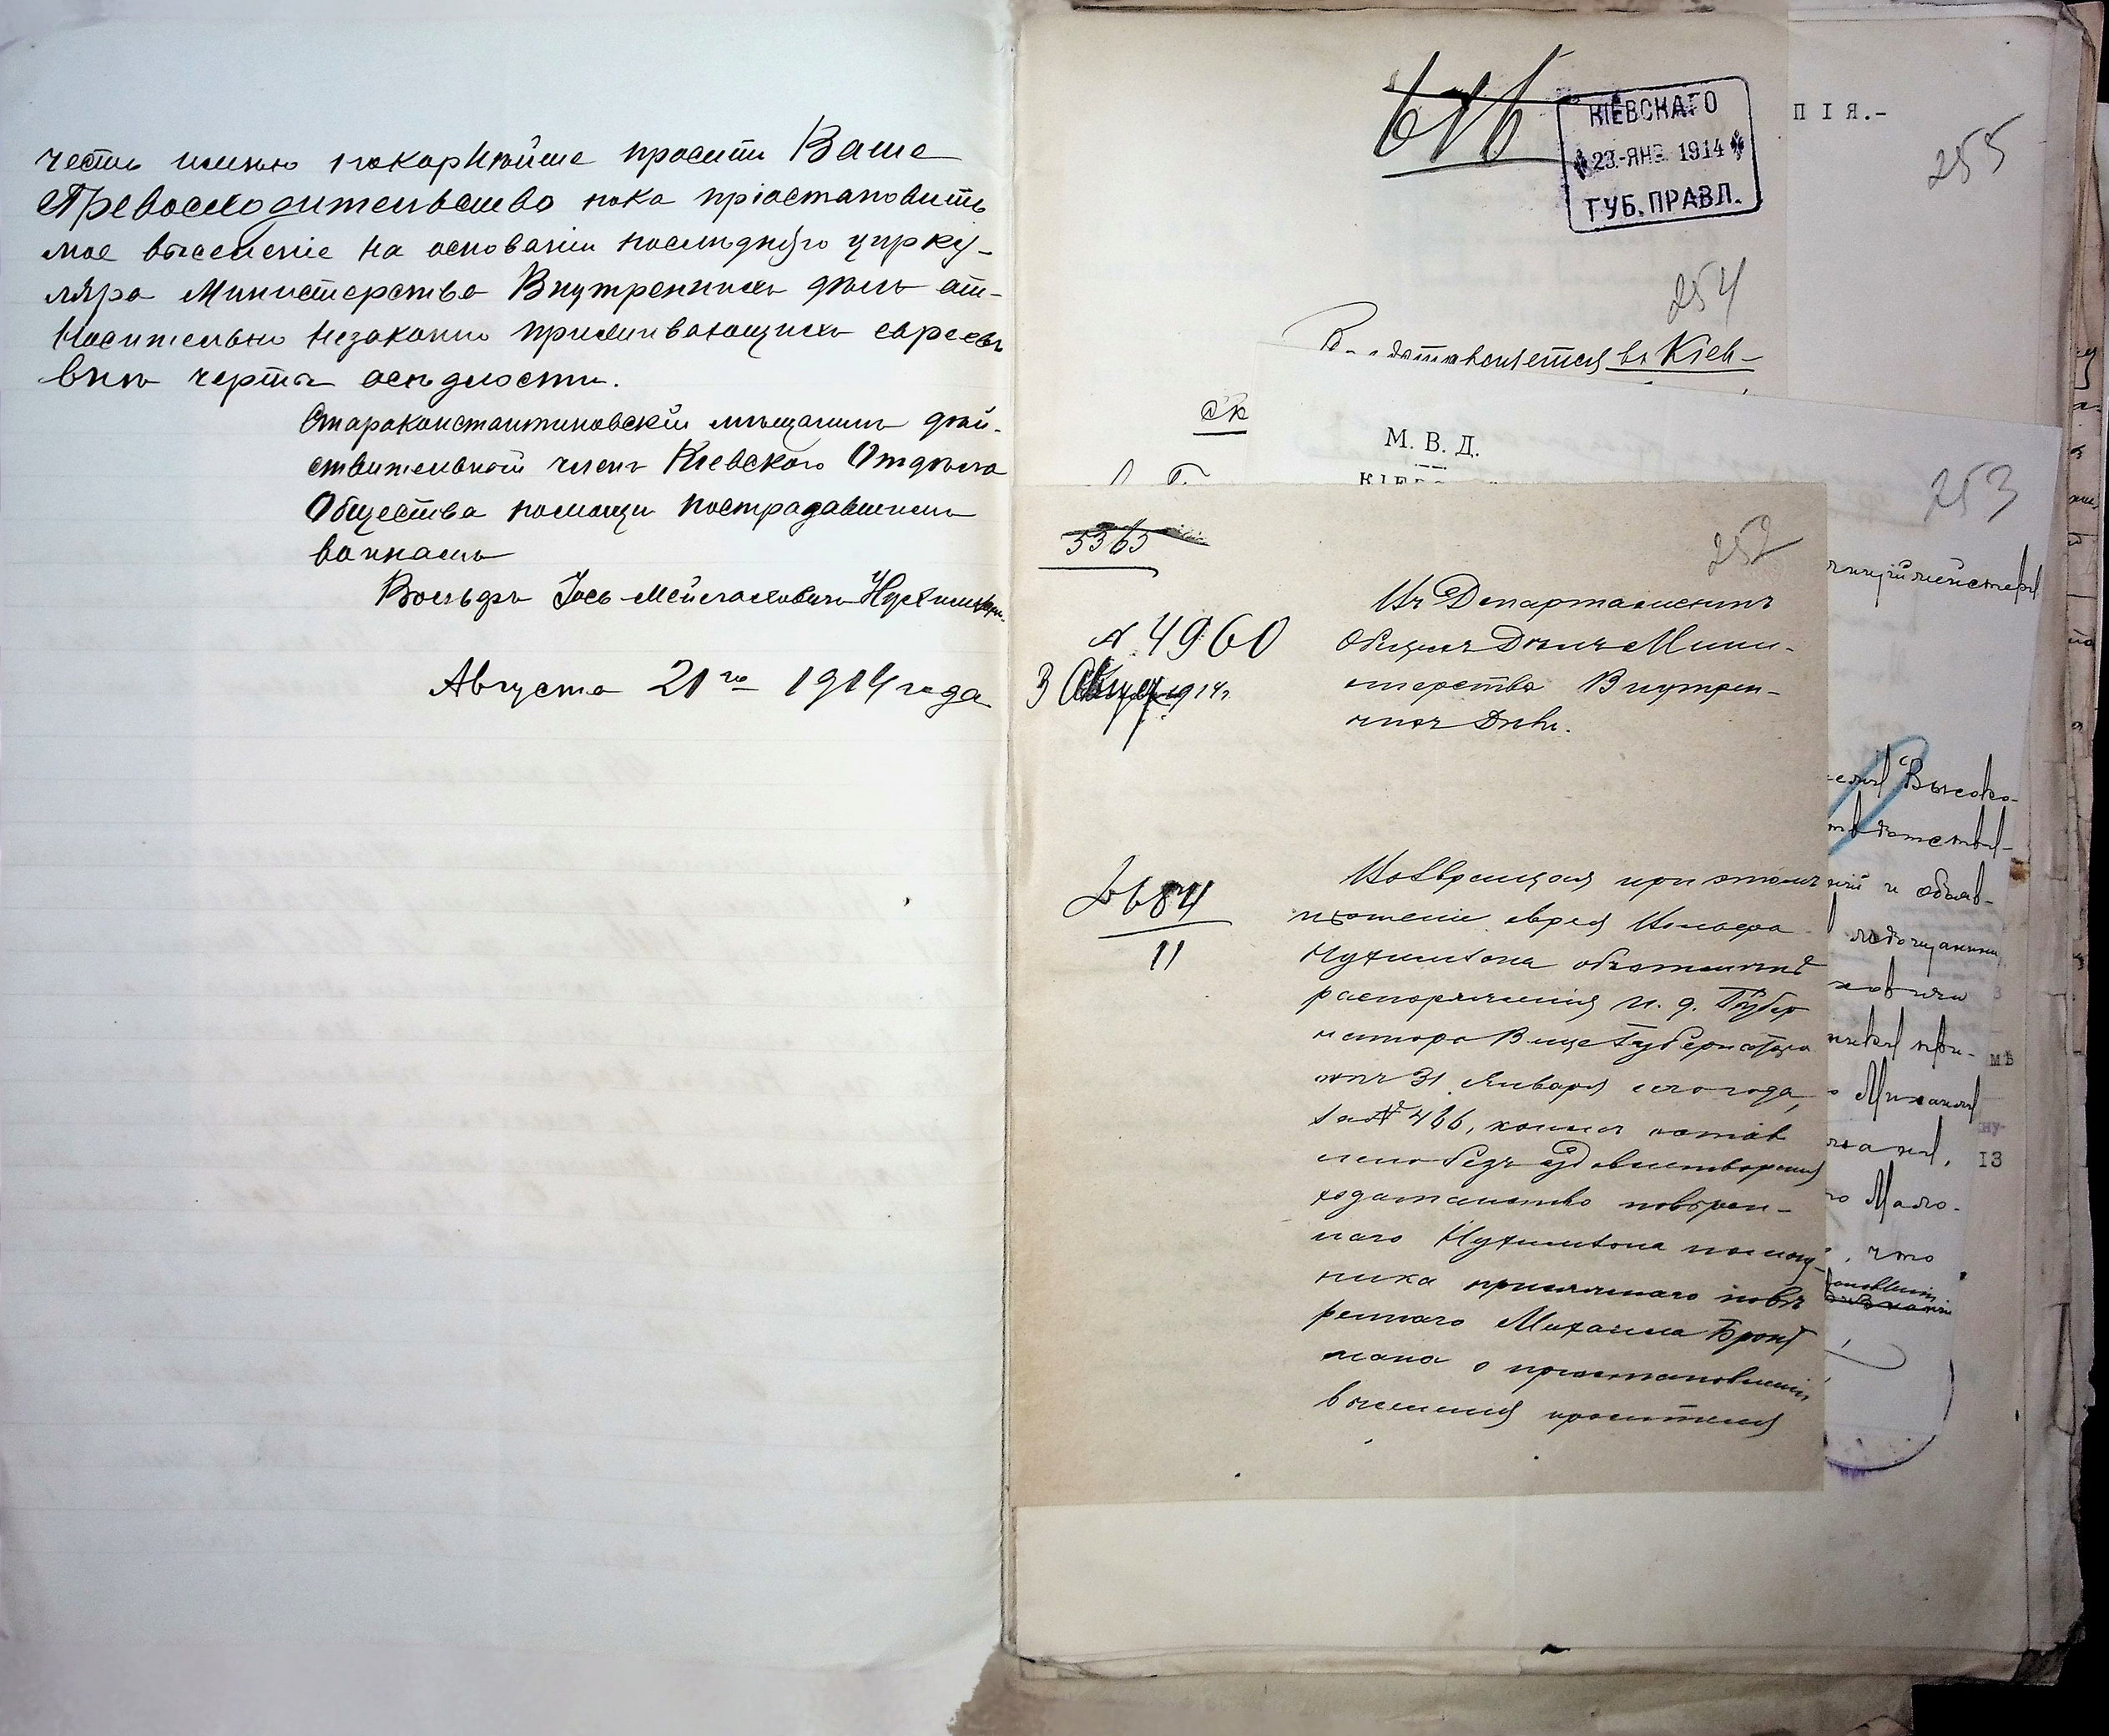 честь имѣю покорнѣйше просить Ваше
Превосходительство пока пріостановить
мое выселеніе на основаніи послѣдняго цирку-
ляра Министерства Внутреннихъ дѣлъ от-
носительно незаконно проживающихъ евреевъ
внѣ черты осѣдлости.
Староконстантиновскій мѣщанинъ дѣй-
ствительный членъ Кіевскаго Отдѣла
Общества помощи пострадавшимъ
воинамъ
Вольфъ Іось Мейлаховичъ
Августа 21го 1914 года
616
КІЕВСКАГО
23-ЯНВ. 1914
ГУБ. ПРАВЛ.
ПІЯ.-
255
254
въ Кіев-
М. В. Д.
253
252
5365
№ 4960
3 1914г.
Въ Департаментъ
Общихъ Дѣлъ Мини-
стерства Внутрен-
нихъ Дѣлъ.
6684
11
Возвращая при этомъ
прошеніе еврея
Нухимзона объ отмѣнѣ
распоряженія И. д. Губер
натора Вице Губернатора
отъ 31 Января сего года
за № 466, коимъ остав
лено безъ удовлетворенія
ходатайство повѣрен-
наго Нухимзона помощ-
ника присяжнаго повѣ
реннаго Михаила
о пріостановленіи
выселенія просителя
Высоко-
и объяв-
Михаила
Мало-
, что
мѣ
ну-
13